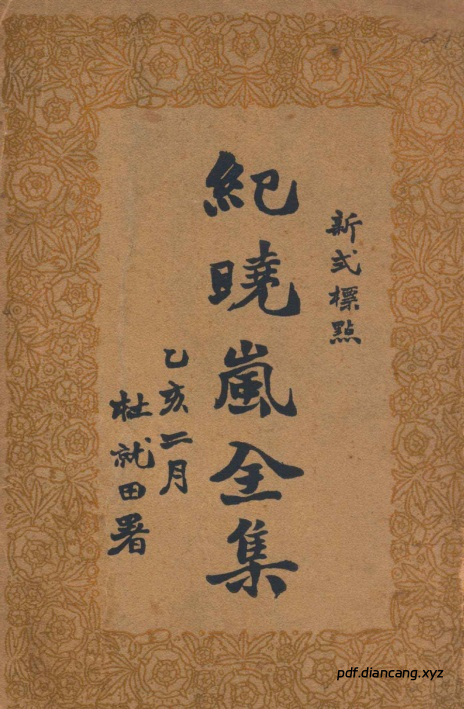 新式標點
紀曉嵐全集
乙亥二月
杜就田署
pdf.diancang.xyz